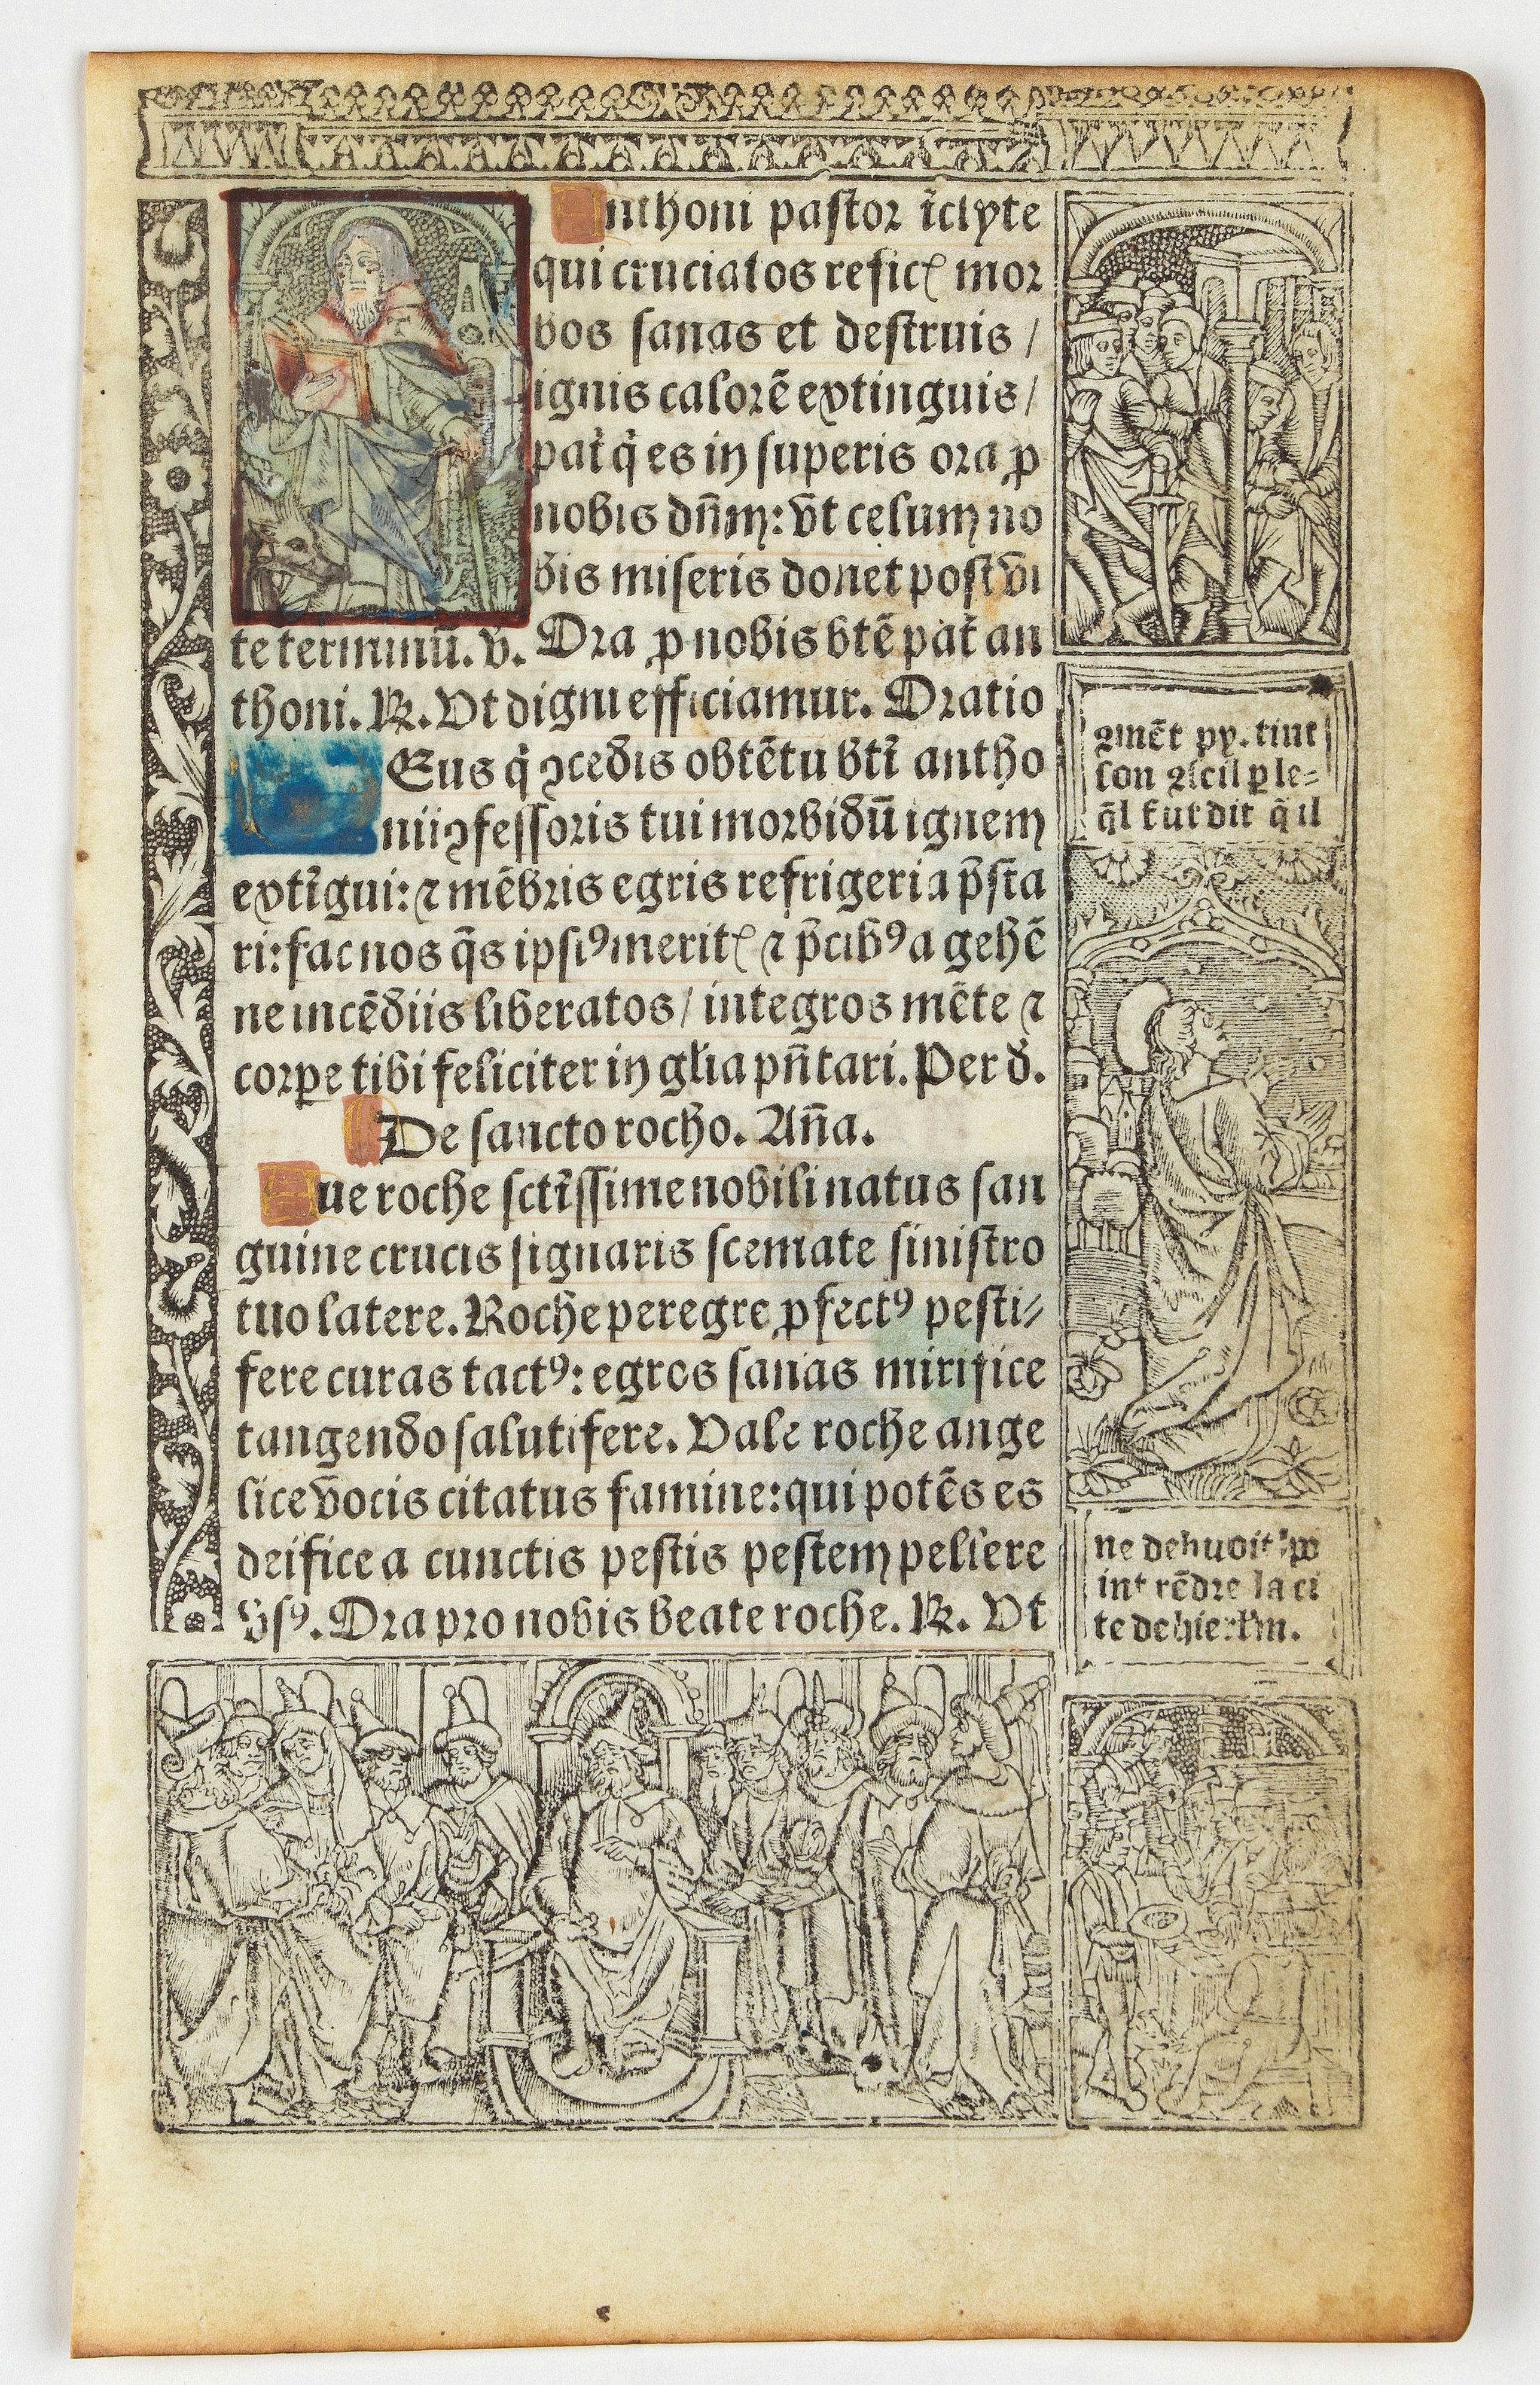 Anthoni pastor īclyte
qui cruciatos reficꝭ mor
bos sanas et destruis /
ignis calorē extinguis /
pat̄ q̇ es in superis ora ꝓ
nobis dn̄m: vt celum no
bis miseris donet post vi
te terminū. v̄. Ora ꝓ nobis btē pat̄ an
thoni. ℞. Vt digni efficiamur. Oratio
DEus q̇ ꝯcedis obtētu btī antho
nii ꝯfessoris tui morbidū ignem
extīgui: ⁊ mēbris egris refrigeria p̄sta
ri: fac nos q̄s ipsiꝰ meritꝭ ⁊ p̄cibꝰ a gehē
ne incēdiis liberatos / integros mēte ⁊
corꝑe tibi feliciter in gl̄ia pn̄tari. Per d̄.
De sancto rocho. An̄a.
Aue roche sctīssime nobili natus san
guine crucis signaris scemate sinistro
tuo latere. Roche peregre ꝓfectꝰ pesti⸗
fere curas tactꝰ: egros sanas mirifice
tangendo salutifere. Vale roche ange
lice vocis citatus famine: qui potēs es
deifice a cunctis pestis pestem pellere
v̄sꝰ. Ora pro nobis beate roche. ℞. Vt
ꝯmēt py. tint
son ꝯseil ꝑ le⸗
q̄l fut dit q̄ il
ne debuoit
int rēdre la ci
te de hierl̄m.